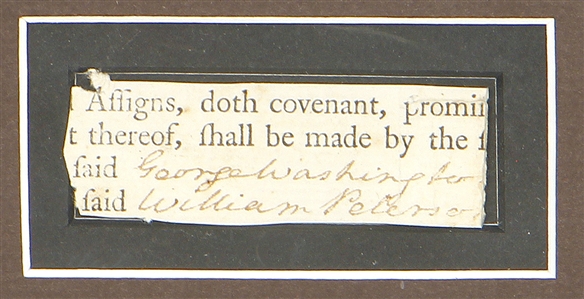 Aſſigns, doth covenant, promiſ
t thereof, ſhall be made by the ſ
ſaid George Washington
ſaid William Peterso